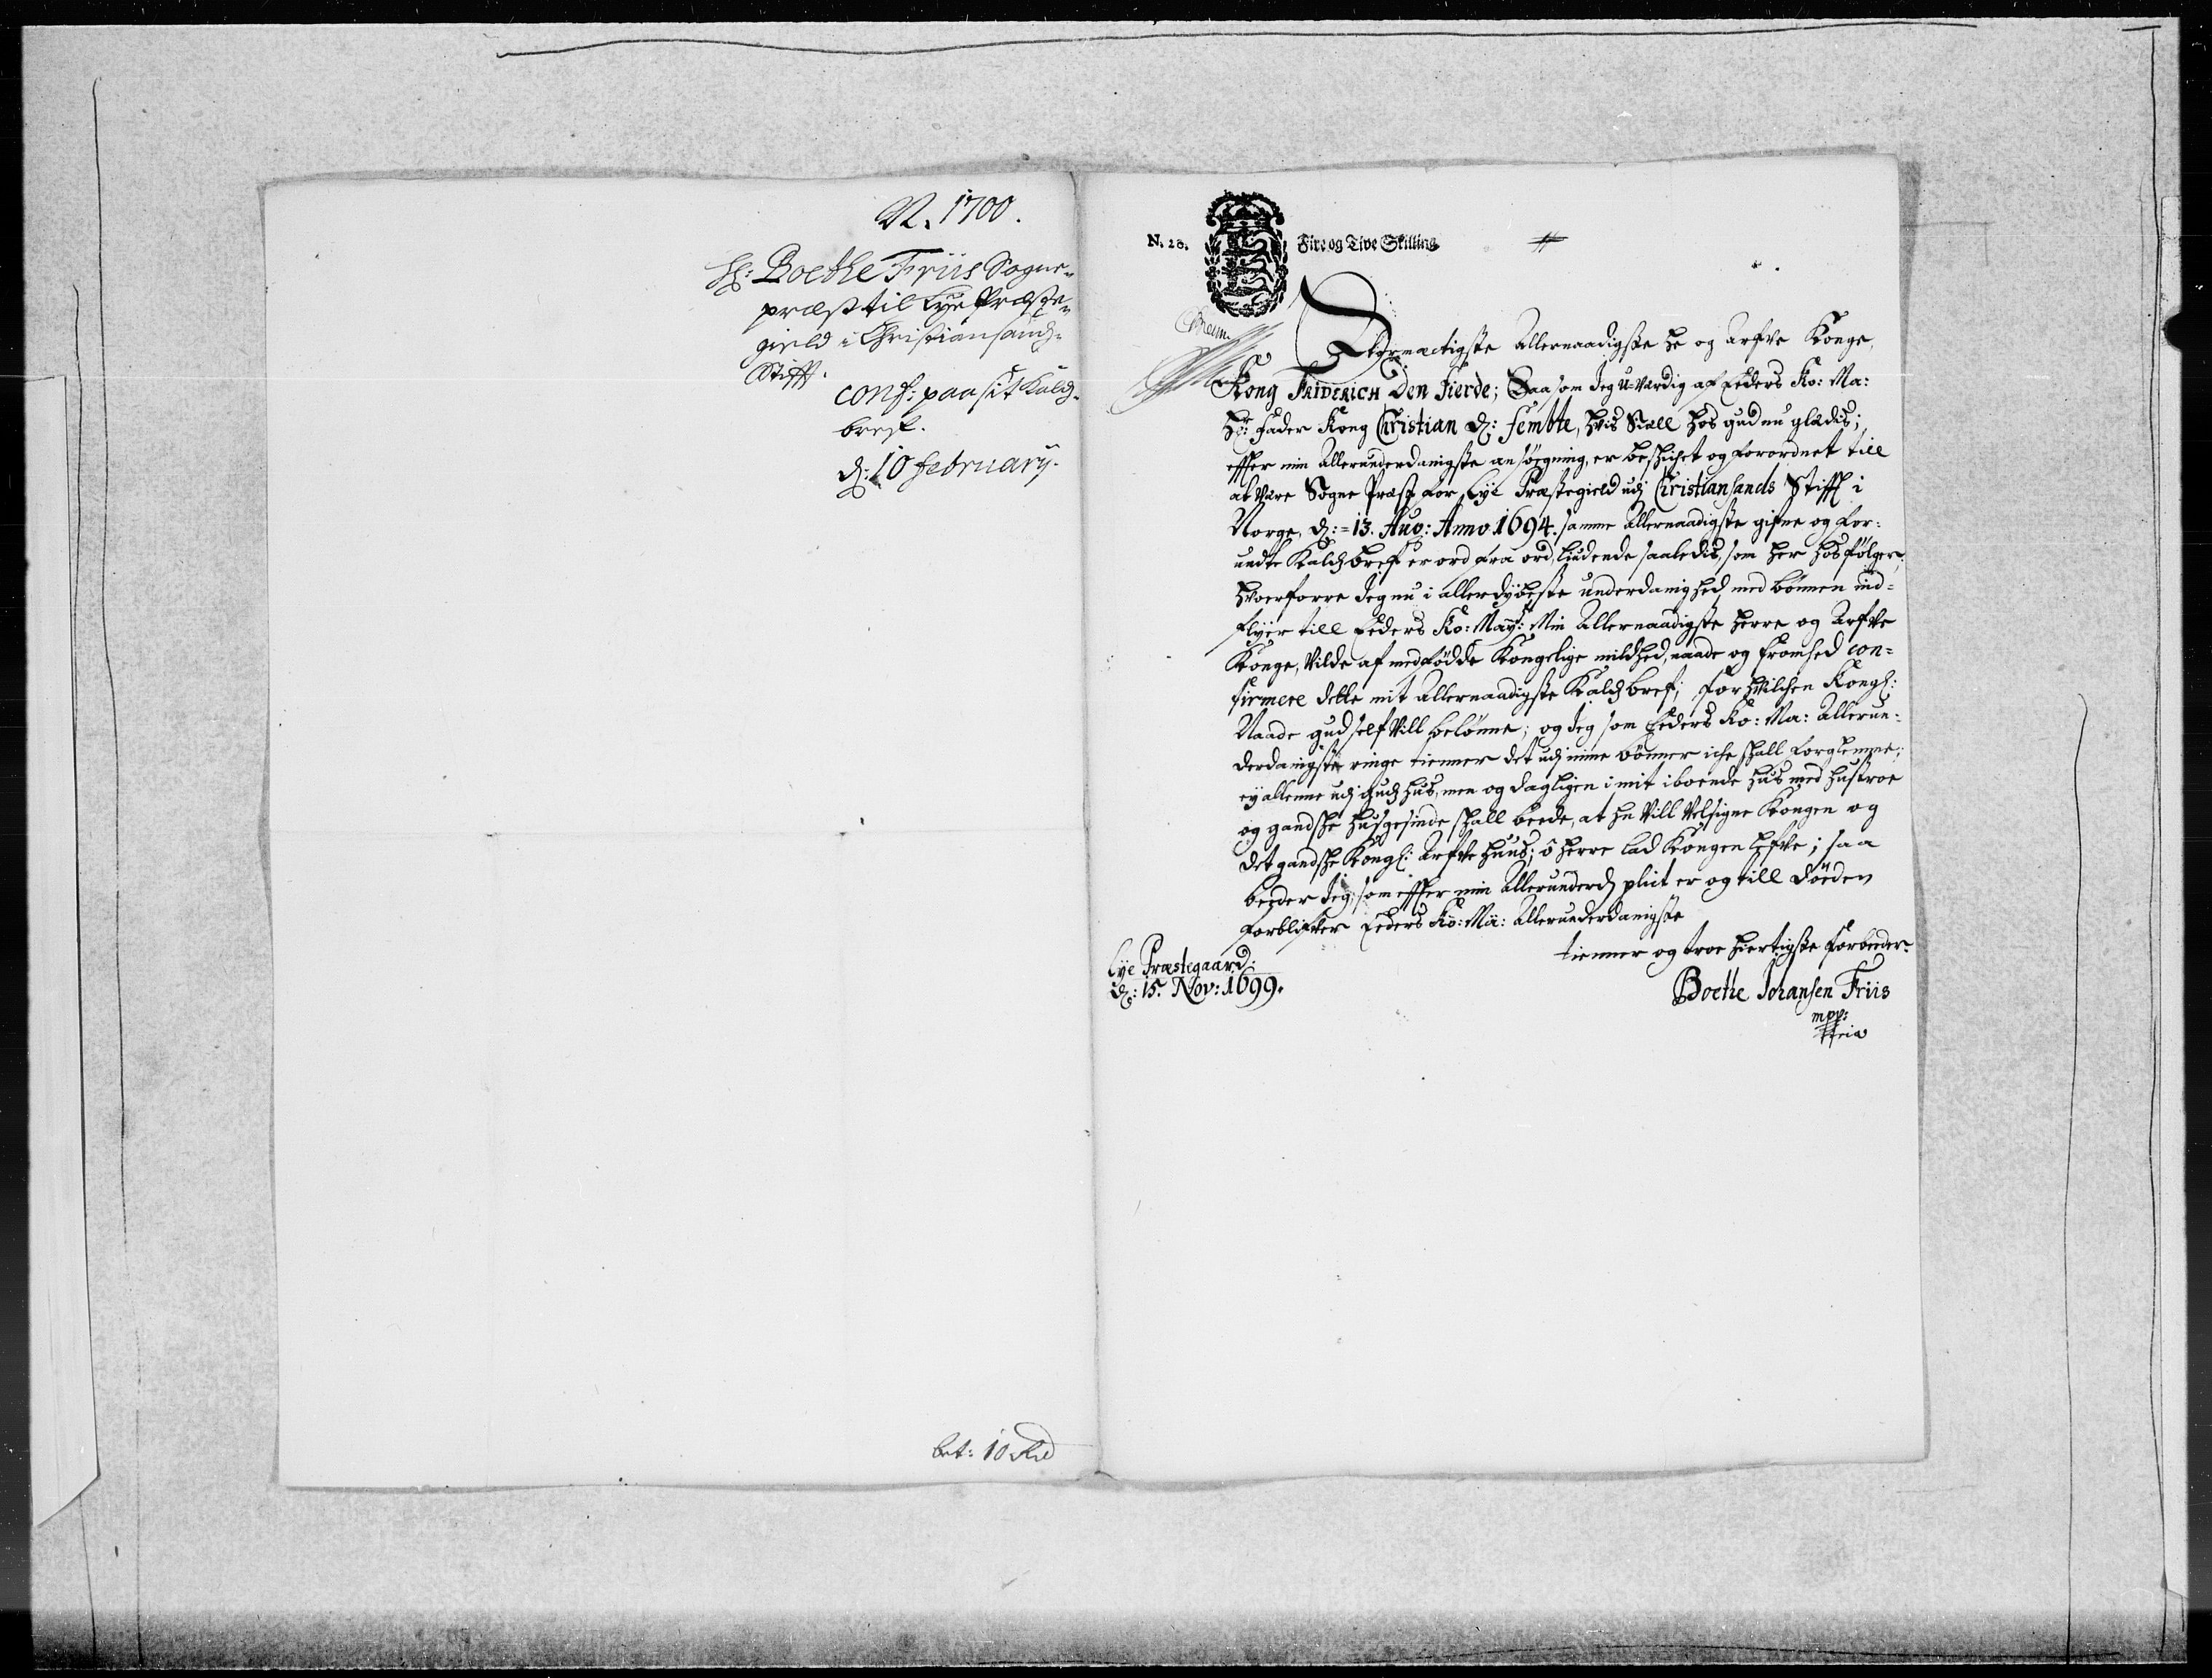 N. 1700.
H: Boethe Friis Sogne-
præst til Lye Præste-
gield i Christiansands
Stifft.
conf: paa sit Kalds-
bref.
d: 10 february.
bet: 10 Rd
N. 28. Fire og Tive Skilling
Stormectigste Allernaadigste He og Arfve Konge,
Kong FRIDERICH Den Fierde; Saasom Jeg U-værdig af Eders Ko: Ma:
Hr: Fader Kong Christian d: Fembte, hvis Siæll hos gud nu glædis;
effter min Allerunderdanigste ansøgning, er beskichet og forordnet till
at være Sogne Præst for Lye Præstegield udj Christiansands Stifft i
Norge, d: 13. Aug: Anno 1694. samme Allernaadigste gifne og for-
undte Kaldsbref er ord fra ord liudende saaledis, som her hos følger,
hvorforre Jeg nu i allerdybeste underdanighed med bønnen ind-
flyer till Eders Ko: May: Min Allernaadigste Herre og Arfve
Konge, Vilde af medfødde Kongelige mildhed, naade og fromhed con-
firmere dette mit Allernaadigste Kaldsbref; for hvilchen Kongl:
Naade gud self vill belønne; og Jeg som Eders Ko: Ma: Allerun-
derdanigste ringe tienner det udj mine bønner iche skall forglemme;
ey allenne udj guds hus, men og dagligen i mit iboende hus med hustroe
og gandske husgesinde skall beede, at hn Vill Velsigne Kongen og
det gandske Kongl: Arfve Huus; ô Herre lad Kongen lefve; saa
beeder Jeg, som effter min Allerunderd plict er og till døeden
forblifver Eders Ko: Ma: Allerunderdanigste
tienner og troe hiertigste forbeeder
Lye Præstegaard:
d: 15. Nov: 1699.
Boethe Johansen Friis
mpp: